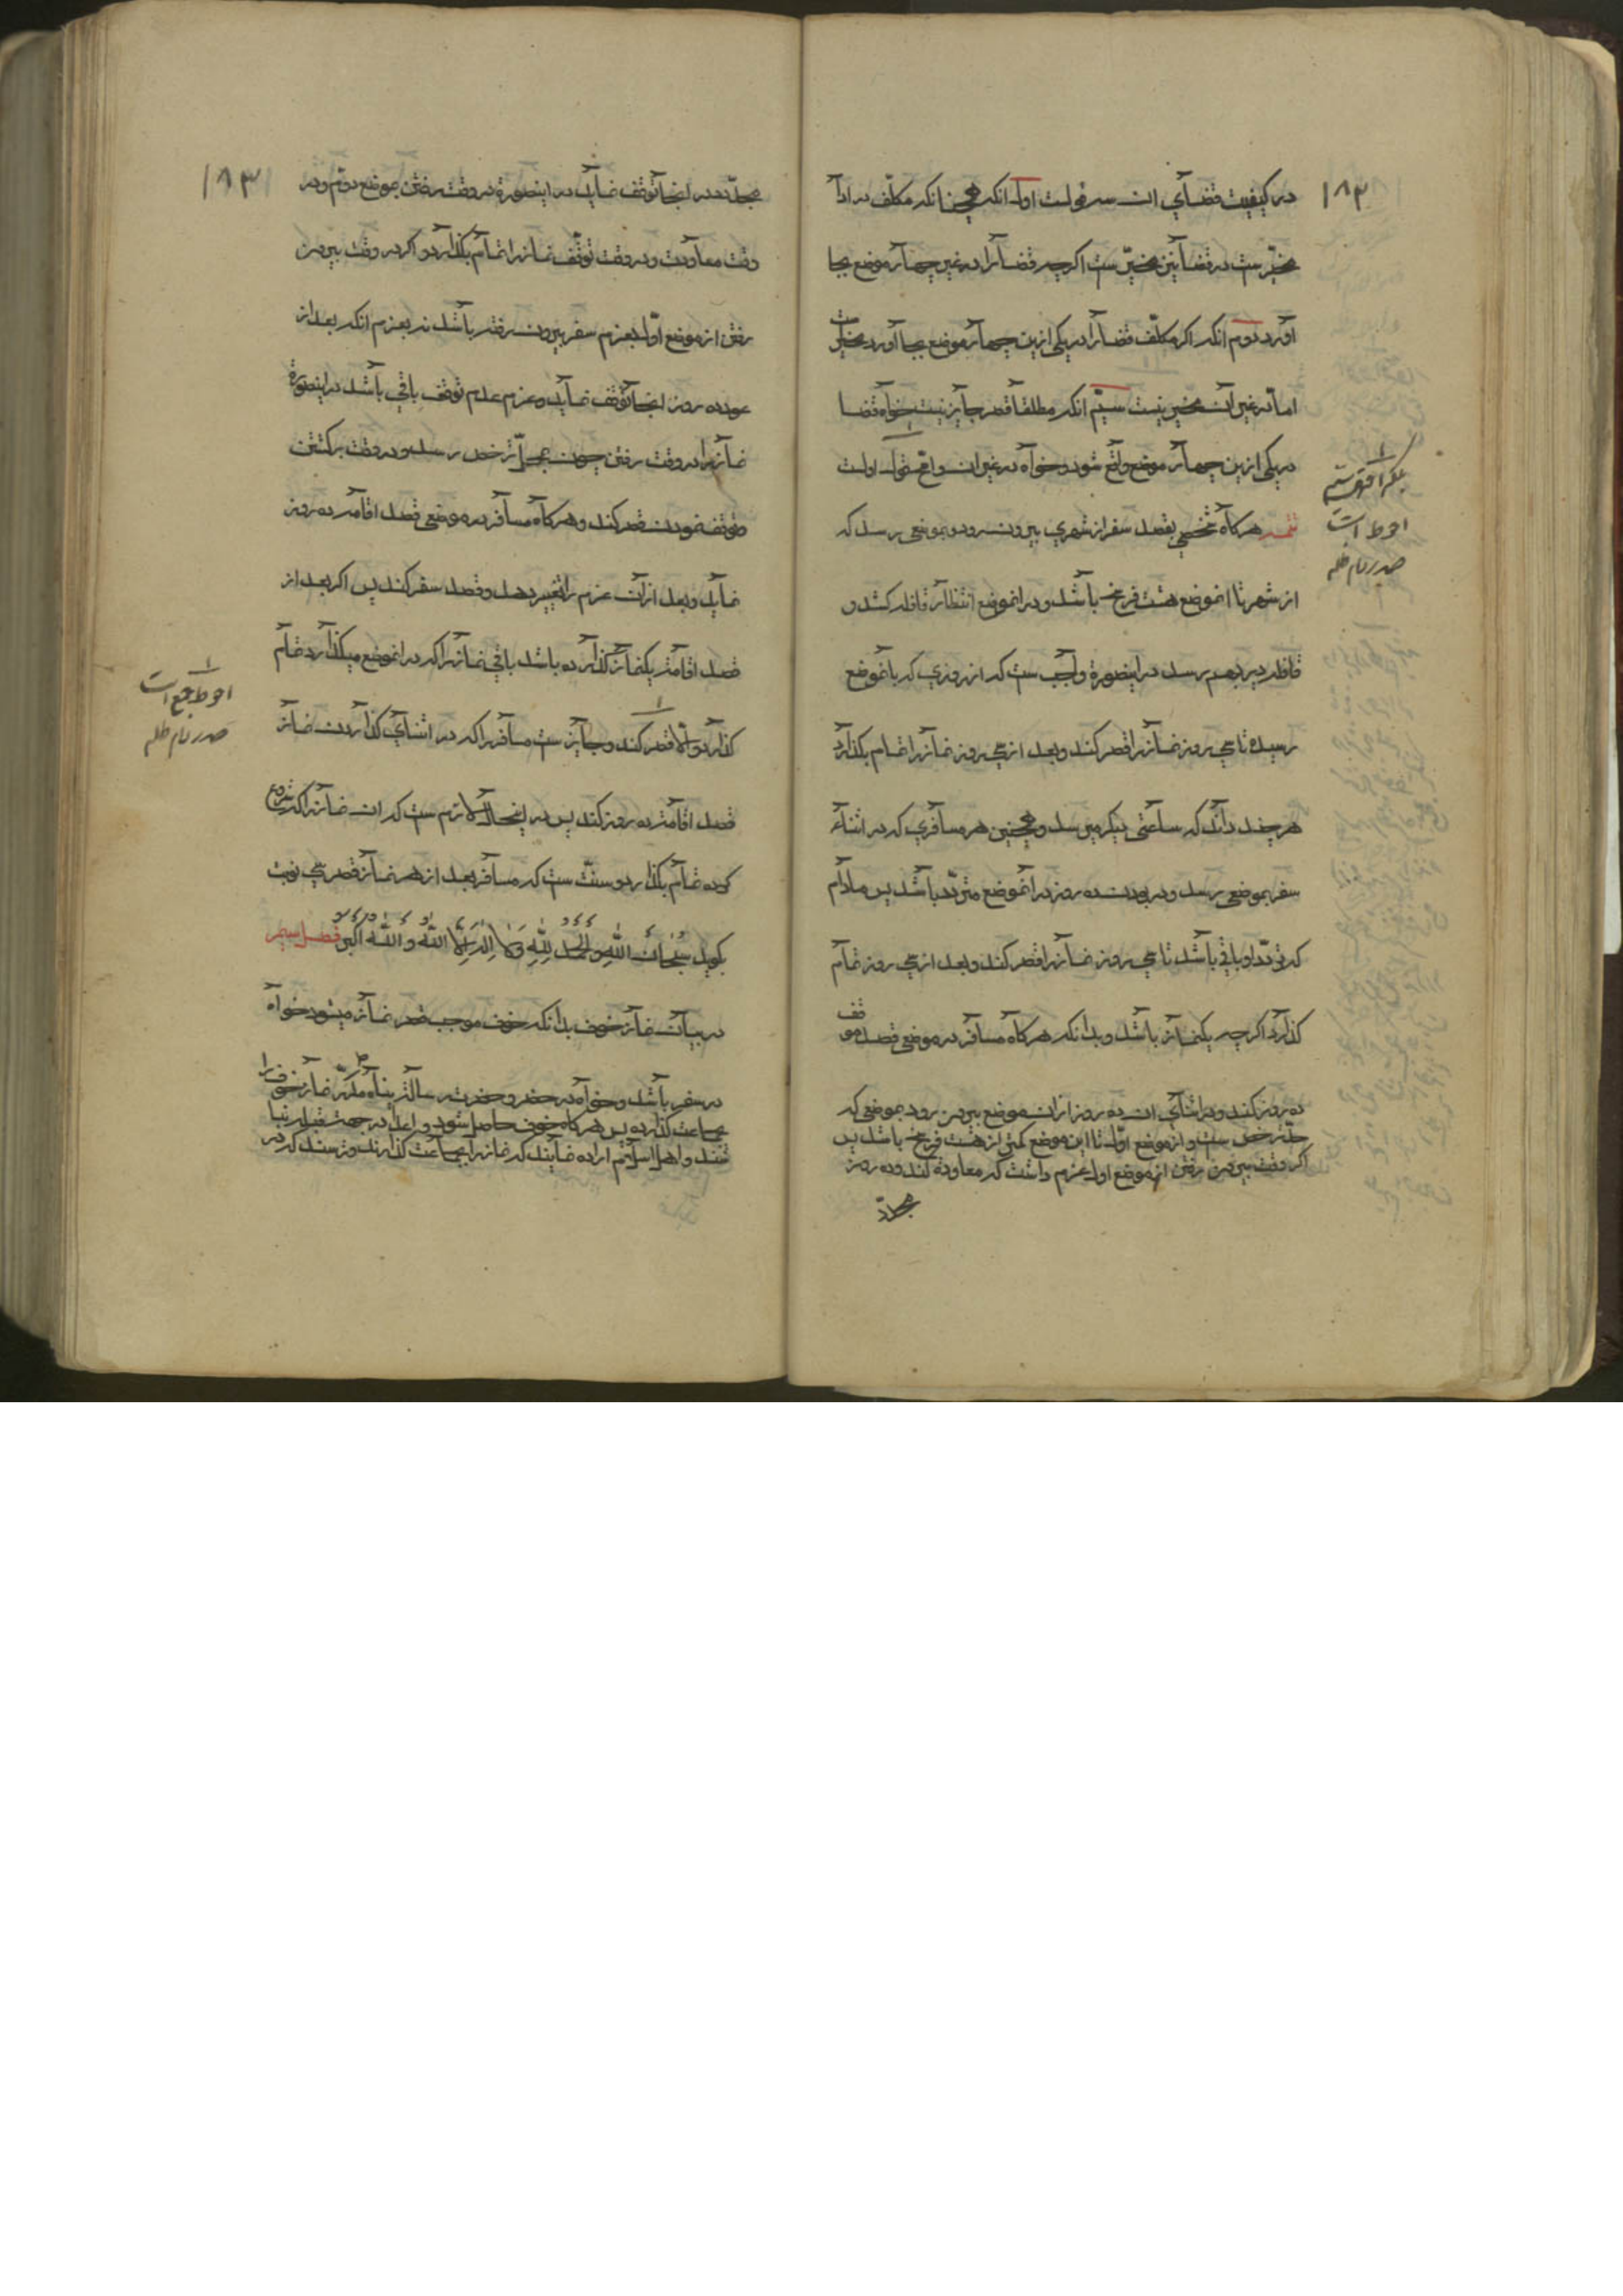 ۱۸۲
در کیفیت قضای ان سه قولست اول انکه همچنانکه مکلف در ادا
مخیرست در قضا نیز مخیرست اگرچه قضا را در غیر چهار موضع بجا
اورد دوم انکه اکر مکلف قضا را در یکی ازین چهار موضع بجا اورد مخیرست
اما در غیر ان مخیر نیست سیم انکه مطلقا قصر جایز نیست خواه قضا
در یکی ازین چهار موضع واقع شود و خواه در غیر ان و اقوی قول اولست
تتمه هرکاه شخصی بقصد سفر از شهری بیرون رود و بموضعی رسد که
از شهر تا انموضع هشت فرسخ باشد و در انموضع انتظار قافله کشد و
قافله دیر بهم رسد در اینصورة واجب ست که از روزی که بانموضع
رسیده تا سی روز نماز را قصر کند و بعد از سی روز نماز را تمام بکذارد
هرچند داند که ساعتی دیکر میرسد و همچنین هر مسافری که در اثناء
سفر بموضعی رسد و در بودن ده روز در انموضع متردد باشد پس مادام
که تردد او باقی باشد تا سی روز نماز را قصر کند و بعد از سی روز تمام
کذارد اکرچه یکنماز باشد و بدانکه هرکاه مسافر در موضعی قصد موقف
ده روز کند و در اثنای ان ده روز از ان موضع بیرون رود بموضعی که
حد ترخص ست و از موضع اول تا این موضع کمتر از هشت فرسخ باشد پس
اکر وقت بیرون رفتن از موضع اول عزم داشت که معاودة کند و ده روز
مجدد
بلکه اقوی سیم
احوط است
صدر دام ظله
۱۸۳
مجدد در انجا توقف نماید در اینصورة در وقت رفتن بموضع دوم و در
وقت معاودت و در وقت توقف نماز را تمام بکذارد و اکر در وقت بیرون
رفتن از موضع اول بعزم سفر بیرون رفته باشد نه بعزم انکه بعد از
عود ده روز انجا توقف نماید و عزم عدم توقف باقی باشد در اینصورة
نماز را در وقت رفتن چون بمحل ترخص رسد و در وقت برکشتن
و توقف نمودن قصر کند و هرکاه مسافر در موضعی قصد اقامه ده روز
نماید و بعد از ان عزم را تغییر دهد و قصد سفر کند پس اکر بعد از
قصد اقامه یکنماز کذارده باشد باقی نماز را که در انموضع میکذارد تمام
کذارد و الا قصر کند و جایز ست مسافر را که در اثنای کذاردن نماز
قصد اقامه ده روز کند پس در اینحال لازم ست که ان نماز را که شروع
کرده تمام بکذارد و سنت ست که مسافر بعد از هر نماز قصر سی نوبت
بکوید سُبْحَانَ اللهِ وَالْحَمْدُ لِلّهِ وَلَا اِلهَ اِلَّا اللهُ وَ اللهُ اَكْبَرُ فصل سیم
در بیان نماز خوف بدانکه خوف موجب قصر نماز میشود خواه
در سفر باشد و خواه در حضر و حضرت رسالت پناه مکرر نماز خوف را
بجماعت کذارده پس هرکاه خوف حاصل شود و اعدا در جهت قبله نبا
شند و اهل اسلام اراده نمایند که نماز را بجماعت کذارند و ترسند که در
احوط جمع است
صدر دام ظله